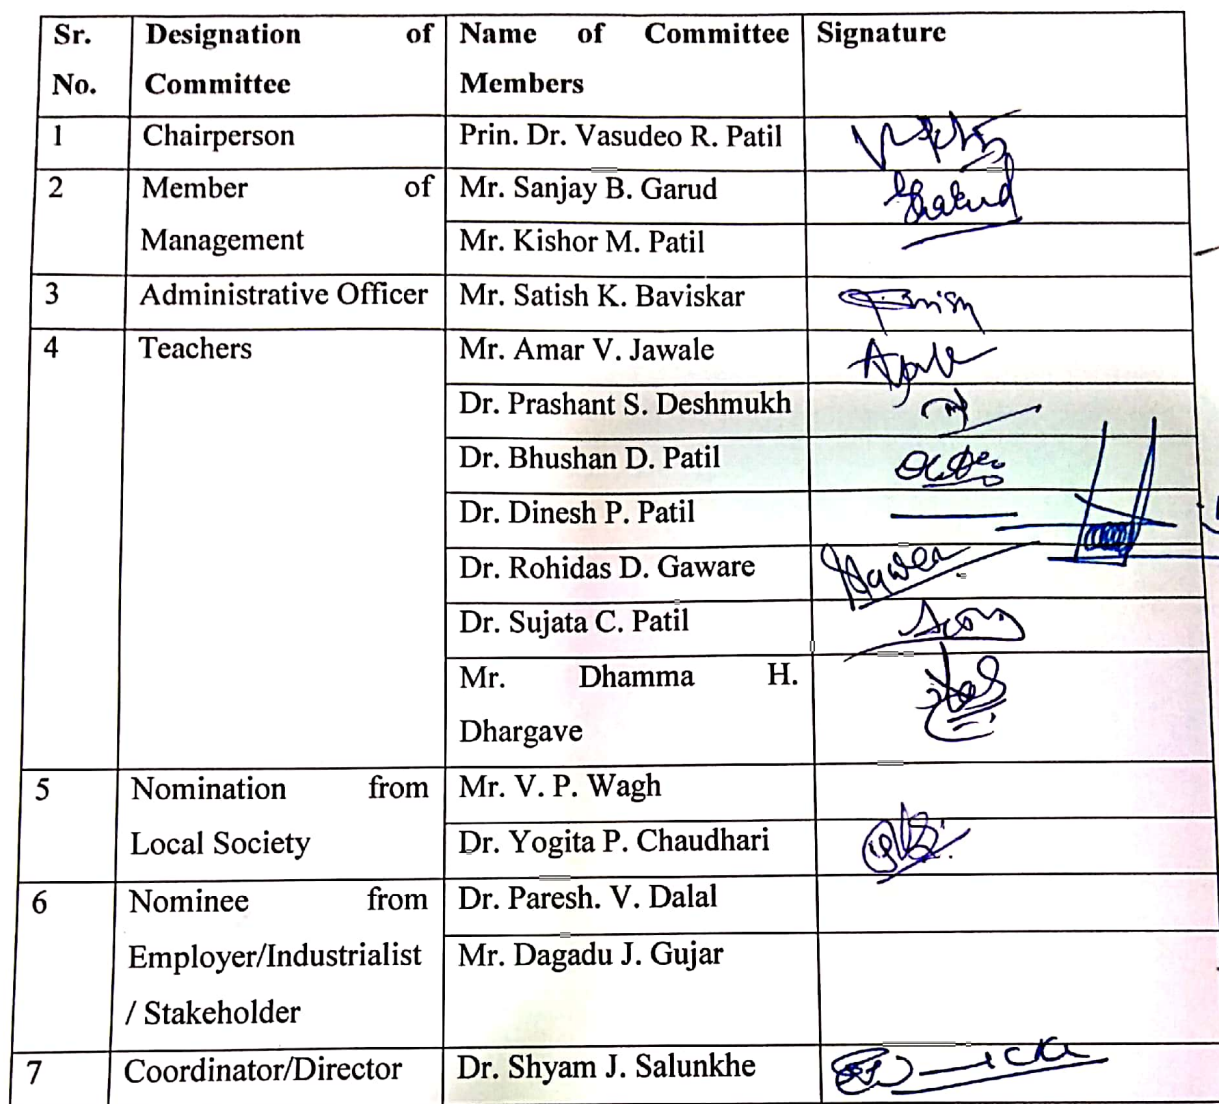 Sr. No. Designation of Committee Name of Committee Members Signature
1 Chairperson Prin. Dr. Vasudeo R. Patil
2 Member of Management Mr. Sanjay B. Garud
Mr. Kishor M. Patil
3 Administrative Officer Mr. Satish K. Baviskar
4 Teachers Mr. Amar V. Jawale
Dr. Prashant S. Deshmukh
Dr. Bhushan D. Patil
Dr. Dinesh P. Patil
Dr. Rohidas D. Gaware
Dr. Sujata C. Patil
Mr. Dhamma H. Dhargave
5 Nomination from Local Society Mr. V. P. Wagh
Dr. Yogita P. Chaudhari
6 Nominee from Employer/Industrialist / Stakeholder Dr. Paresh. V. Dalal
Mr. Dagadu J. Gujar
7 Coordinator/Director Dr. Shyam J. Salunkhe